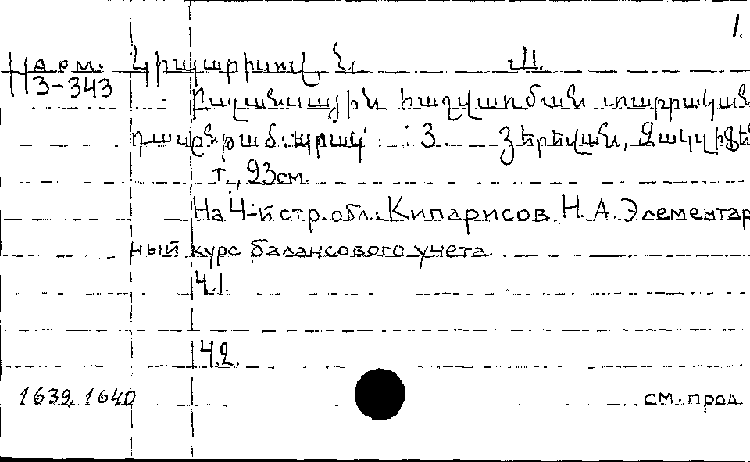 1.
На арм. Կիպարիսով, Ն. Ա.
3-343
Բալանսային հաշվառման տարրական
դասընթաց. պրակ 3. Յերեվան,
т., 23см.
На 4-й стр. обл.: Кипарисов Н. А. Элементар
ный курс балансового учета
Ч.1.
Ч.2.
1639, 1640 см. прод.